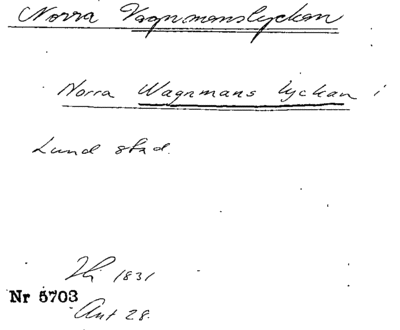 Norra Vagnmanslyckan
Norra Wagnmans lyckan i
Lund stad.
Hi 1831
Nr 5703
Ant 28.